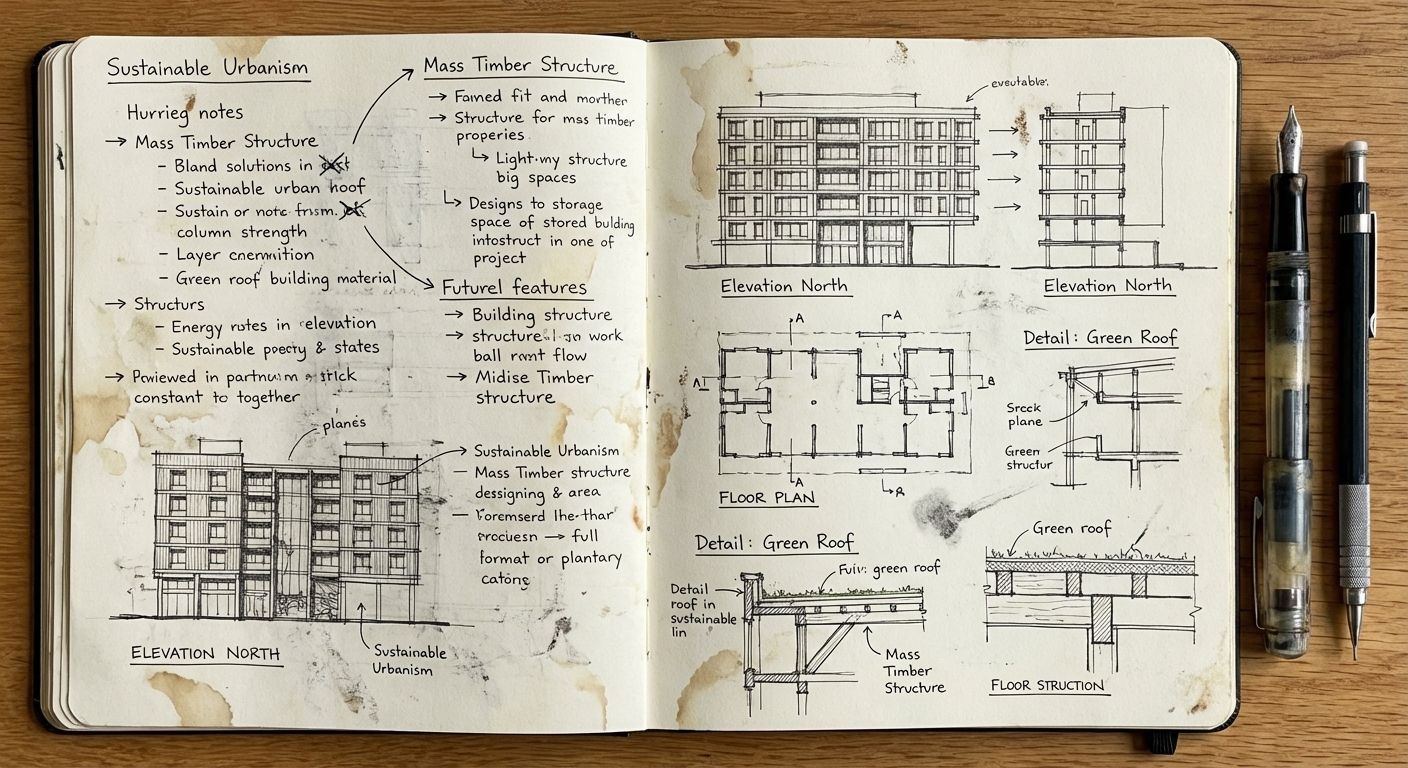 Sustainable Urbanism
Hurrieg notes
→ Mass Timber Structure
– Bland solutions in
– Sustainable urban hoof
– Sustain or note
column strength
– Layer
– Green roof building material
→ Structurs
– Energy rutes in elevation
– Sustainable & states
→ in
constant to together
Mass Timber Structure
→ Famed fit and morther
→ Structure for mss timber
properies
↳ Light-my structure
big spaces
↳ Designs to storage
space of stored bulding
intostruct in one of
project
Futurel features
→ Building structure
→ structure work
ball flow
→ Midise Timber
structure
planes
→ Sustainable Urbanism
– Mass Timber structure
dessigning & area
→ full
format or plantary
ELEVATION NORTH
Sustainable
Urbanism
Elevation North
Elevation North
A
A
B
A
FLOOR PLAN
Detail: Green Roof
Srcck
plane
Green
structur
Detail: Green Roof
green roof
Detail
roof in
sustainable
lin
Mass
Timber
Structure
Green roof
FLOOR STRUCTION